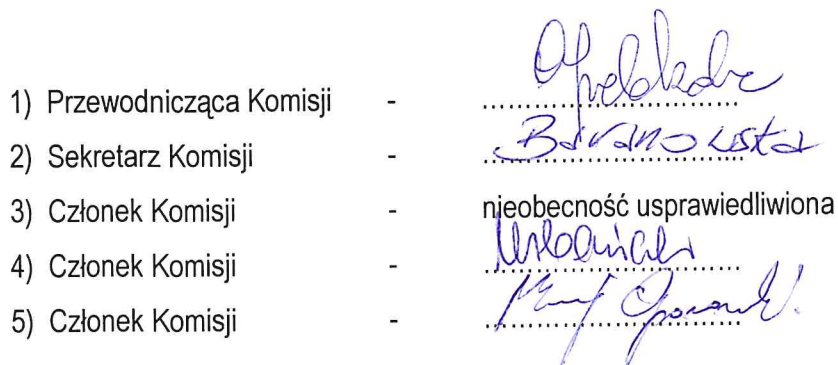 1) Przewodnicząca Komisji - ..............................
2) Sekretarz Komisji - Baranowska
3) Członek Komisji - nieobecność usprawiedliwiona
4) Członek Komisji - ..............................
5) Członek Komisji - ..............................